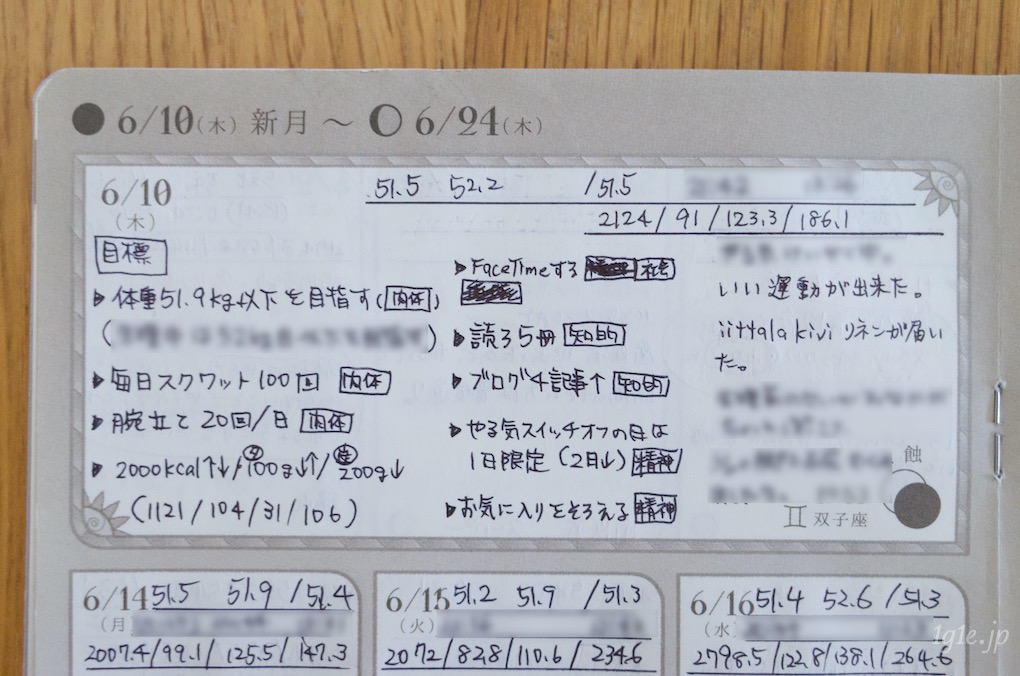 ● 6/10(木) 新月 〜 ○ 6/24(木)
6/10
(木)
51.5 52.2 /51.5
2124/91/123.3/186.1
目標
▶体重51.9kg以下を目指す(肉体)
▶毎日スクワット100回 肉体
▶腕立て20回/日 肉体
▶2000kcal↑↓/100g↓↑/200g↓
(1121/104/31/106)
▶FaceTimeする 社会
▶読ろ5冊 知的
▶ブログ4記事↑ 知的
▶やる気スイッチオフの日は
1日限定(2日↓) 精神
▶お気に入りをそろえる 精神
いい運動が出来た。
iittala kivi リネンが届い
た。
蝕
♊ 双子座
6/14
(月)
51.5 51.9 /51.4
2007.4/99.1/125.5/147.3
6/15
(火)
51.2 51.9 /51.3
2072/82.8/110.6/234.6
6/16
(水)
51.4 52.6 /51.3
2798.5/122.8/138.1/264.6
1g1e.jp